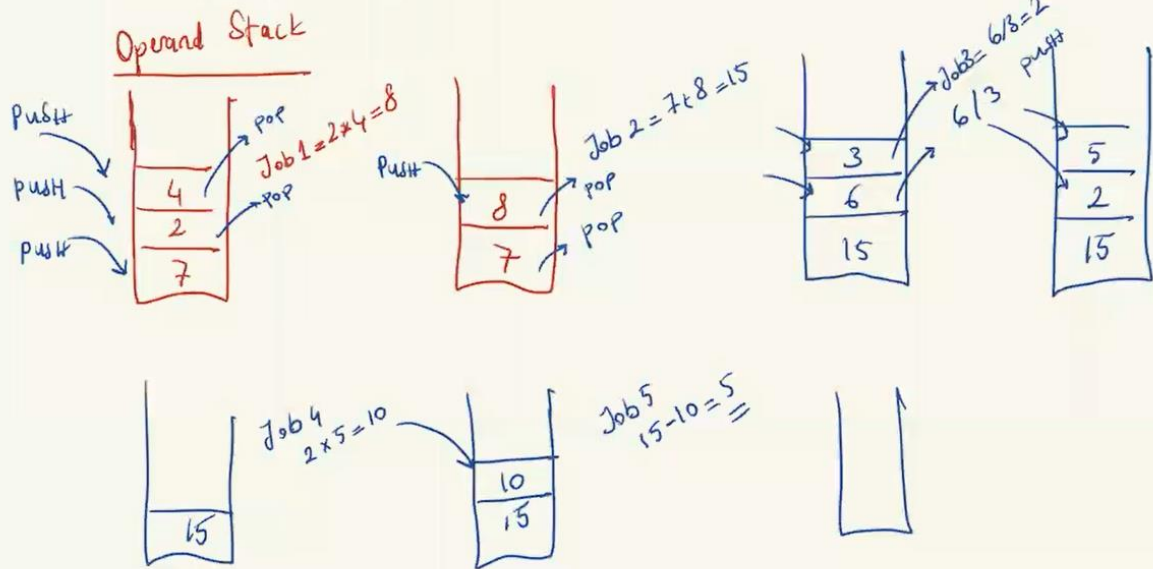 Operand Stack
PUSH
PUSH
PUSH
4
2
7
POP
POP
Job 1 = 2×4=8
PUSH
8
7
POP
POP
Job 2 = 7+8=15
3
6
15
Job3= 6/3=2
6/3
push
5
2
15
15
Job 4
2×5=10
10
15
Job 5
15-10=5